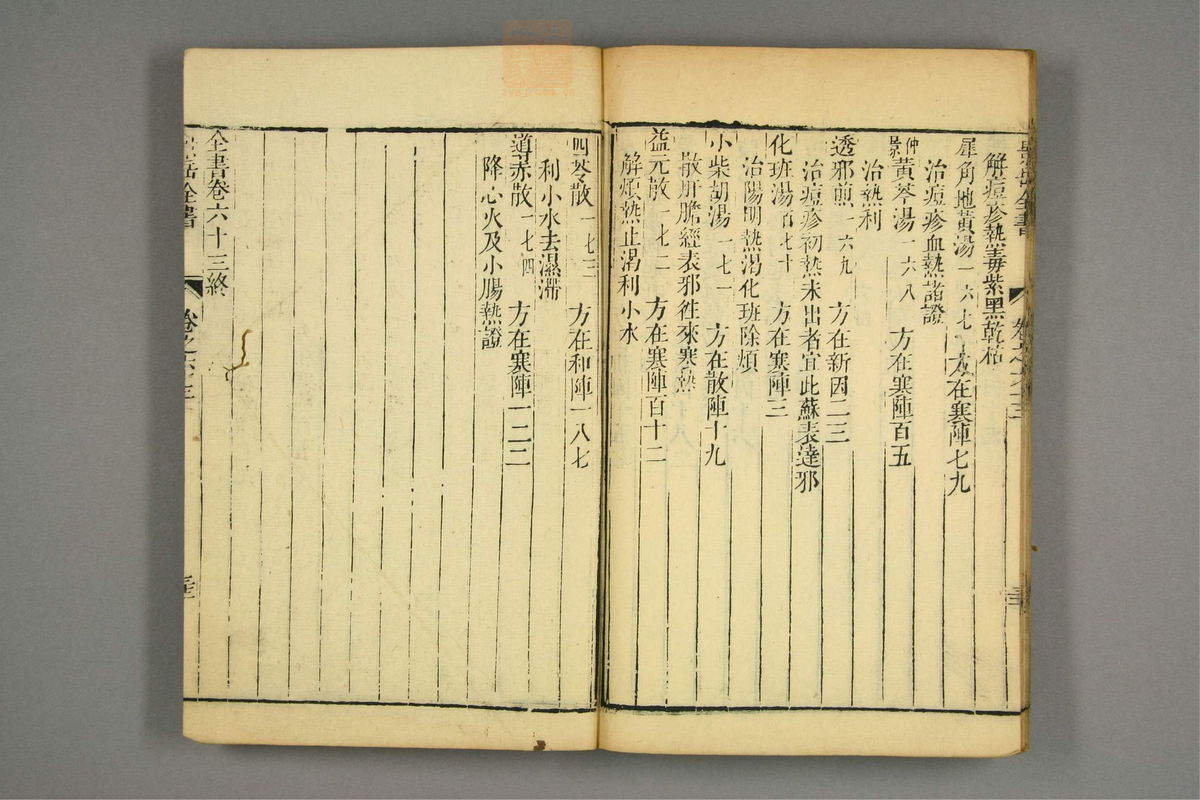 景岳全書
卷之六十三
解痘疹熱毒紫黑乾枯
犀角地黃湯一六七 方在寒陣七九
治痘疹血熱諸證
仲景黃芩湯一六八 方在寒陣百五
治熱利
透邪煎一六九 方在新因二三
治痘疹初熱未出者宜此蘇表達邪
化班湯百七十 方在寒陣三
治陽明熱渴化班除煩
小柴胡湯一七一 方在散陣十九
散肝膽經表邪徃來寒熱
益元散一七二 方在寒陣百十二
解煩熱止渴利小水
四苓散一七三 方在和陣一八七
利小水去濕滯
導赤散一七四 方在寒陣一二二
降心火及小腸熱證
全書卷六十三終
景岳全書
卷之六十三